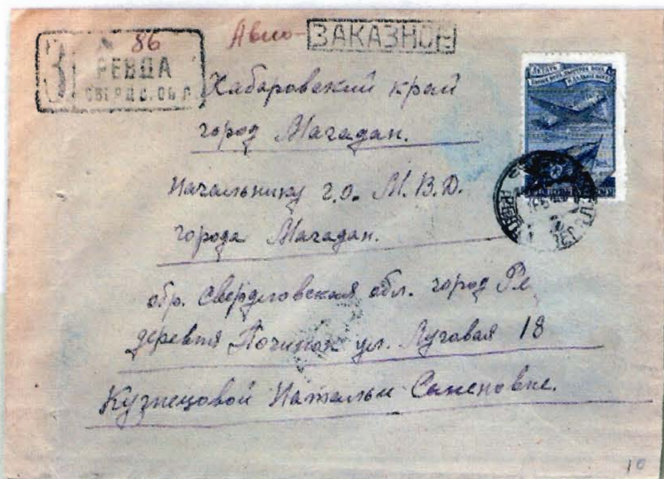 № 86
Авио- ЗАКАЗНОЕ
З РЕВДА
СВЕРДЛ. ОБЛ
Хабаровский край
город Магадан.
Начальнику г.о. М.В.Д.
города Магадан.
обр. Свердловская обл. город Ре
деревня Починок ул. Луговая 18
Кузнецовой Натальи Саменовне.
10